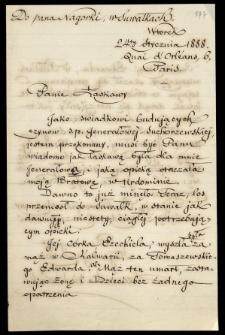 Do pana Nagórki, w Suwałkach.
Wtorek
24go Stycznia 1888.
Quai d'Orléans, 6,
Paris.
Panie Łaskawy
Jako świadkowi budujących
czynów ś.p. Generałowej Suchorzewskiej,
jestem przekonany, musi być Panu
wiadomo jak łaskawą była dla mnie
Generałowa, i jaką opieką otaczała
moją Bratowę, w Urdominie.
Dawno to już minęło. Teraz, los
przeniósł do Suwałk, w stanie jak
dawniej, niestety, ciągłej potrzebują-
cym opieki.
Jej córka Ezechiela, wyszła była
za mąż w Kalwarii, za Tomaszewskie-
go Edwarda. Mąż ten umarł, zosta-
wując żonę i dzieci bez żadnego
opatrzenia.